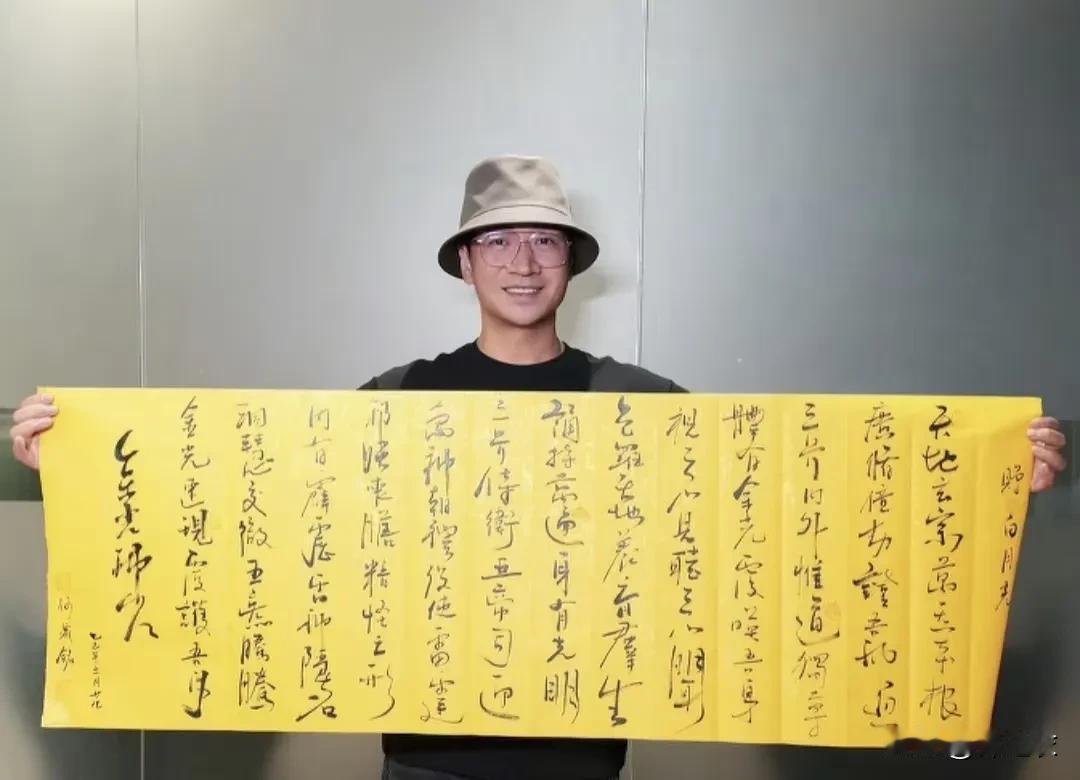 贈 白月光
天地玄宗萬炁本根
廣脩億劫證吾神通
三界内外惟道獨尊
體有金光覆映吾身
視之不見聽之不聞
包羅天地養育羣生
誦持萬遍身有光明
三界侍衛五帝司迎
萬神朝禮役使雷霆
喪膽精怪亡形
内有霹靂雷神隱名
洞慧交徹五炁騰騰
金光速現覆護吾身
金光神咒
何晟銘